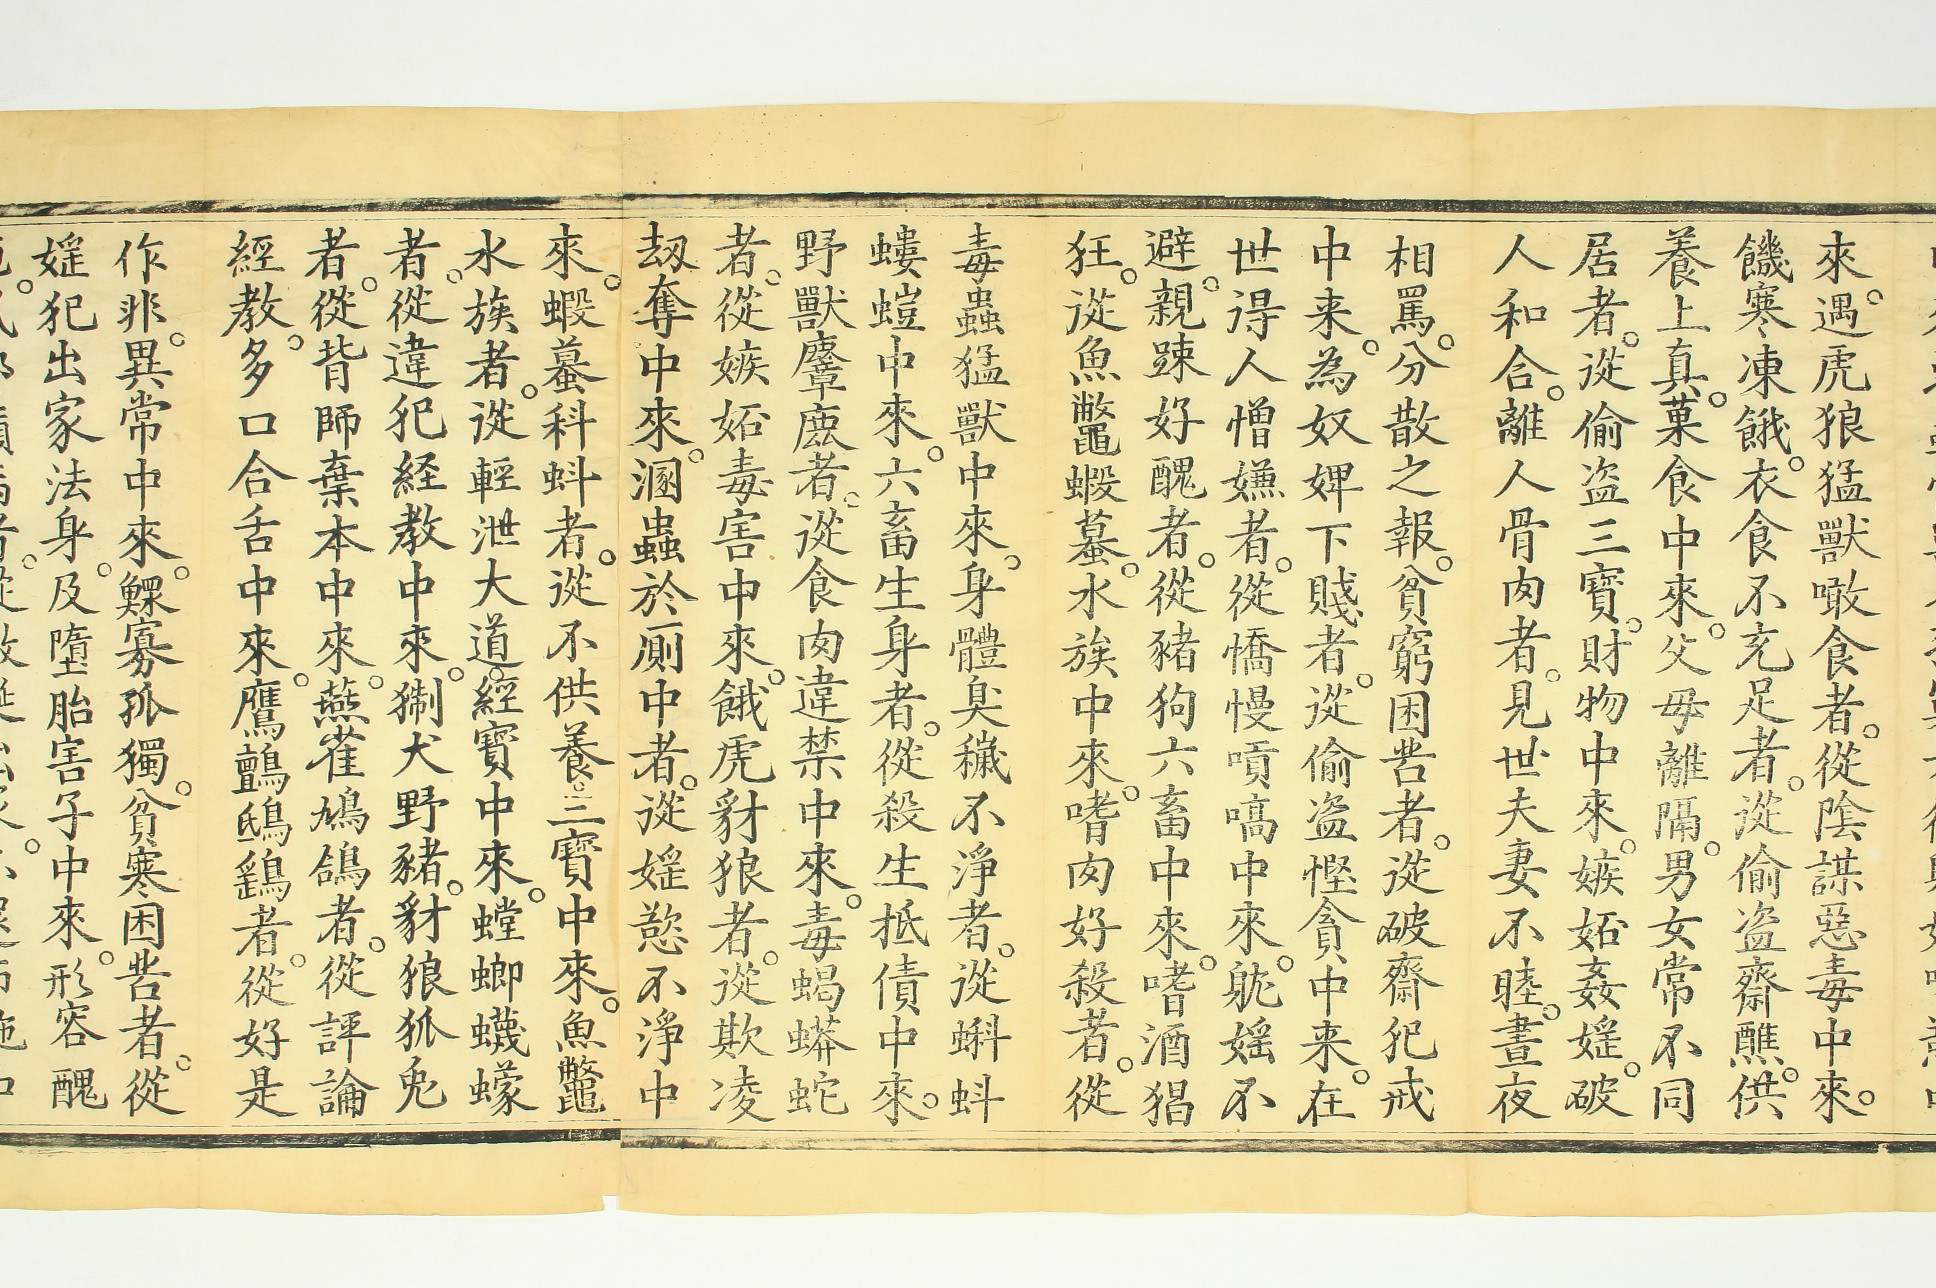 來。遇虎狼猛獸噉食者。從陰謀惡毒中來。
饑寒凍餓。衣食不充足者。從偷盜齋醮。供
養上真。菓食中來。父母離隔。男女常不同
居者。從偷盜三寶。財物中來。嫉妬姦婬。破
人和合。離人骨肉者。見世夫妻不睦。晝夜
相罵。分散之報。貧窮困苦者。從破齋犯戒
中来。為奴婢下賤者。從偷盜慳貪中来。在
世得人憎嫌者。從憍慢嗊㗣中來。躭婬不
避。親踈好醜者。從豬狗六畜中來。嗜酒猖
狂。從魚鼈蝦蟇。水族中來。嗜肉好殺者。從
毒蟲猛獸中來。身體臭穢不淨者。從蝌蚪
螻螘中來。六畜生身者。從殺生抵債中來。
野獸麞䴢者。從食肉違禁中來。毒蝎蟒蛇
者。從嫉妬毒害中來。餓虎豺狼者。從欺凌
刼奪中來。溷蟲於廁中者。從婬慾不淨中
來。蝦蟇科蚪者。從不供養。三寶中來。魚鼈
水族者。從輕泄大道。經寶中來。螳螂蠛蠓
者。從違犯経教中來。猘犬野豬。豺狼狐兔
者。從背師棄本中來。燕雀鳩鴿者。從評論
經教。多口合舌中來。鷹鸇鴟鷂者。從好是
作非。異常中來。鰥寡孤獨。貧寒困苦者。從
婬犯出家法身。及墮胎害子中來。形容醜